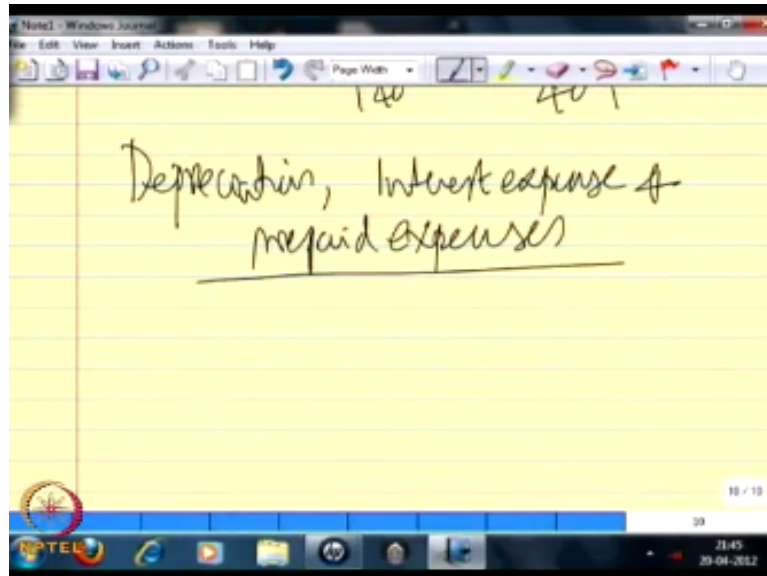 Note1 - Windows Journal
File Edit View Insert Actions Tools Help
Page Width
140 401
Depreciation, Interest expense &
prepaid expenses
10 / 10
10
NPTEL
hp
21:45
20-04-2012